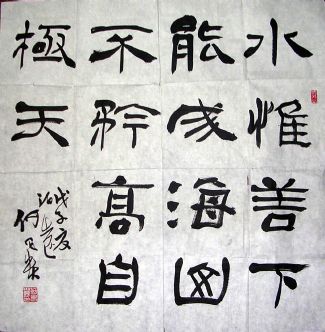 水惟善下
能成海山
不矜高自
極天
戊子夏